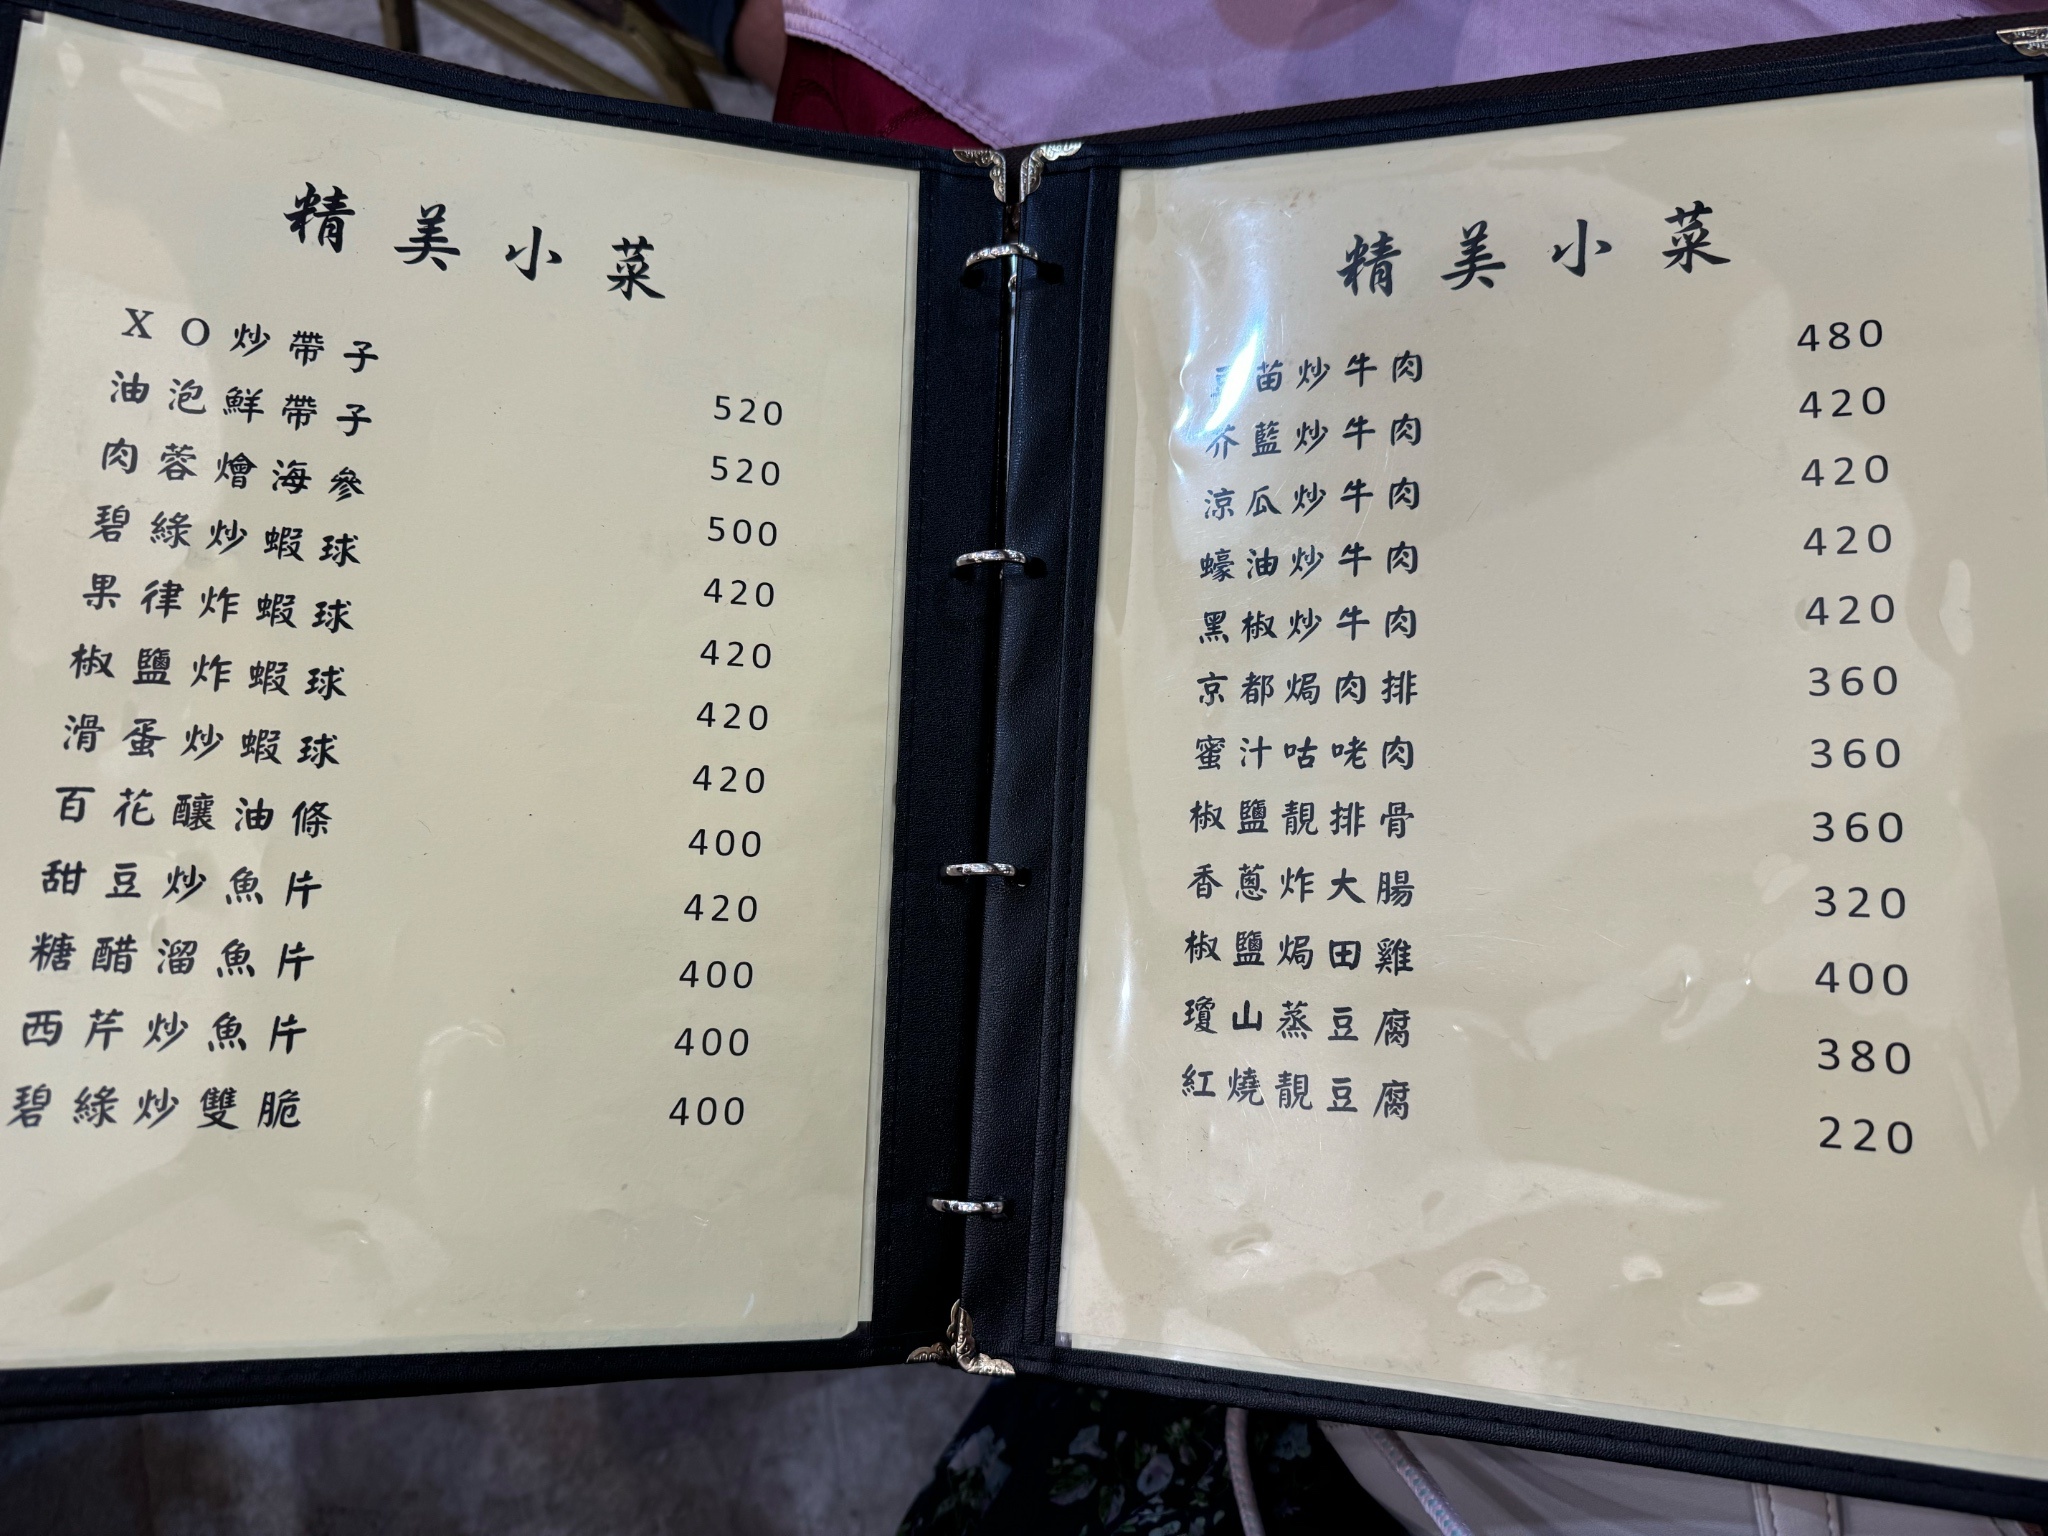 精美小菜
XO炒帶子 520
油泡鮮帶子 520
肉蓉燴海參 500
碧綠炒蝦球 420
果律炸蝦球 420
椒鹽炸蝦球 420
滑蛋炒蝦球 420
百花釀油條 400
甜豆炒魚片 420
糖醋溜魚片 400
西芹炒魚片 400
碧綠炒雙脆 400
精美小菜
豆苗炒牛肉 480
芥藍炒牛肉 420
涼瓜炒牛肉 420
蠔油炒牛肉 420
黑椒炒牛肉 420
京都焗肉排 360
蜜汁咕咾肉 360
椒鹽靚排骨 360
香蔥炸大腸 320
椒鹽焗田雞 400
瓊山蒸豆腐 380
紅燒靚豆腐 220